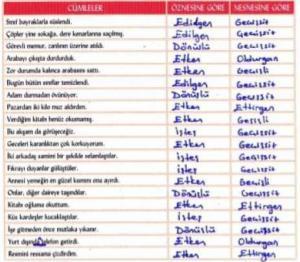 CÜMLELER ÖZNESİNE GÖRE NESNESİNE GÖRE
Sınıf bayraklarla süslendi. Edilgen Geçişsiz
Çöpler yine sokağa, dere kenarlarına saçılmış. Edilgen Geçişsiz
Görevli memur, zanlının üzerine atıldı. Dönüşlü Geçişsiz
Arabayı çıkışta durdurduk. Etken Oldurgan
Zor durumda kalınca arabasını sattı. Etken Geçişli
Bugün bütün sınıflar temizlendi. Edilgen Geçişsiz
Adam durmadan övünüyor. Dönüşlü Geçişsiz
Pazardan iki kilo muz aldırdım. Etken Ettirgen
Verdiğim kitabı henüz okumamış. Etken Geçişli
Bu akşam da görüşeceğiz. işteş Geçişsiz
Geceleri karanlıktan çok korkuyorum. Etken Geçişsiz
İki arkadaş samimi bir şekilde selamlaştılar. işteş Geçişsiz
Fıkrayı duyanlar gülüştüler. işteş Geçişsiz
Annesi yemeğin en güzel kısmını ona ayırdı. Etken Geçişli
Onlar, diğer daireye taşındılar. Dönüşlü Geçişsiz
Kitabı oğluma okuttum. Etken Ettirgen
Küs kardeşler kucaklaştılar. işteş Geçişsiz
İşe gitmeden önce mutlaka yıkanır. Dönüşlü Geçişsiz
Yurt dışından telefon getirdi. Etken Oldurgan
Resmini ressama çizdirdim. Etken Ettirgen